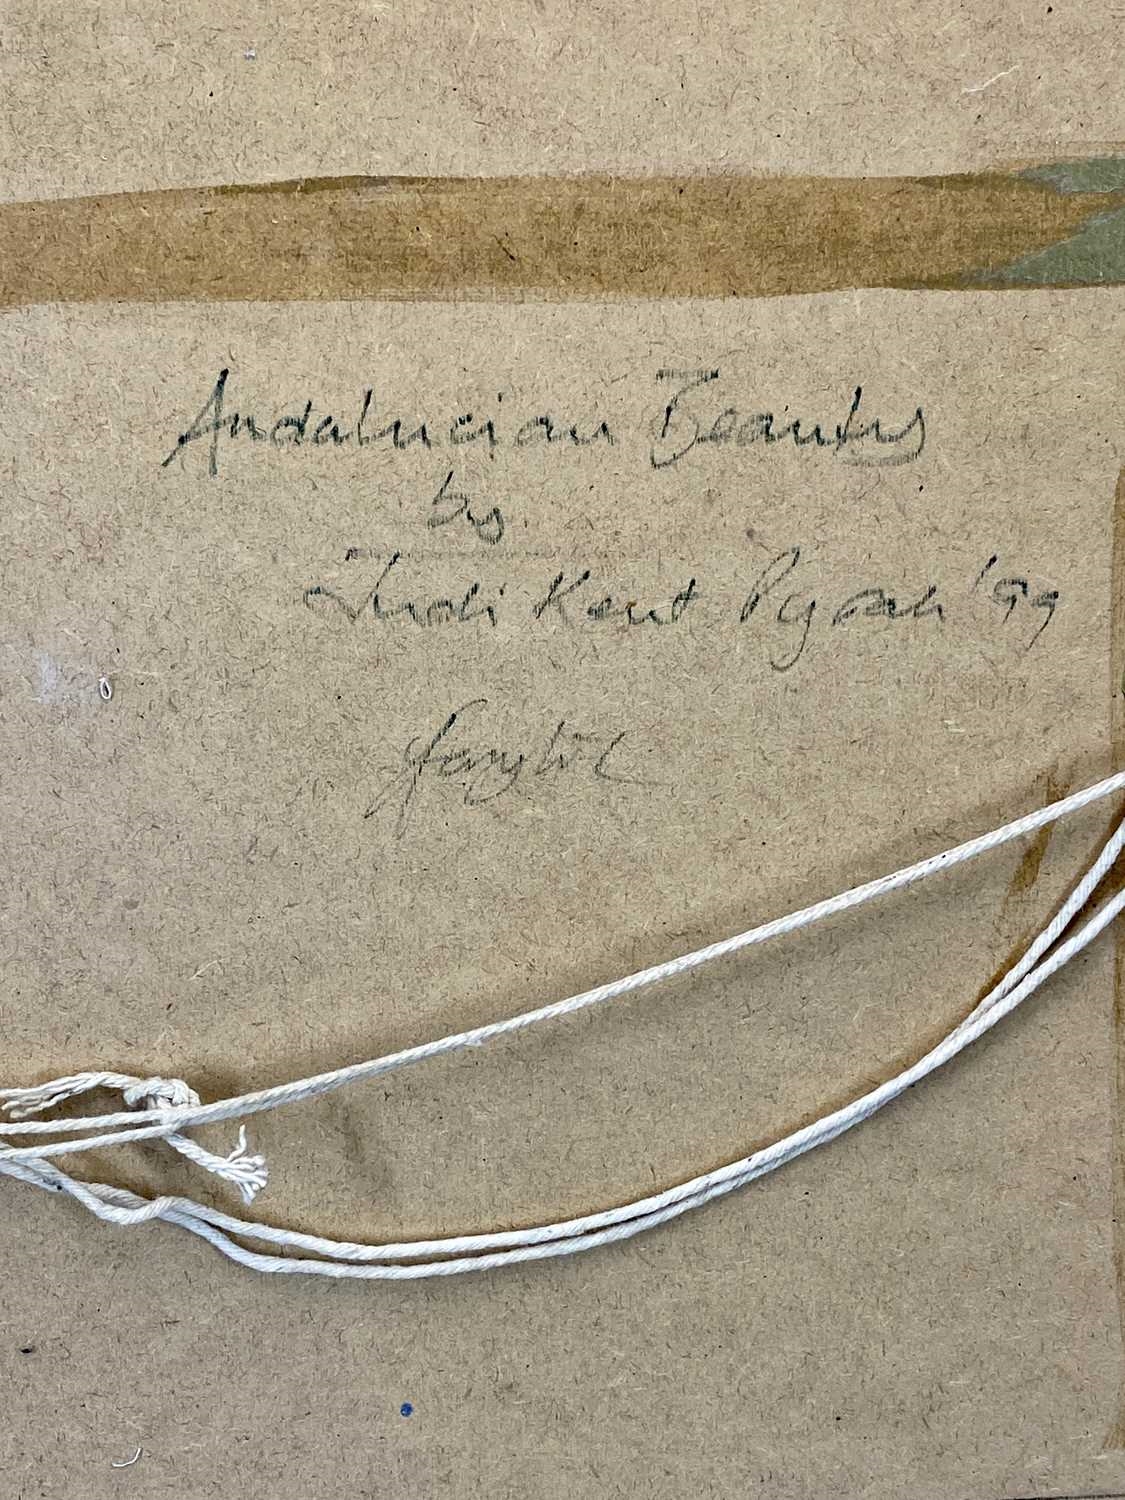 Andalucian Beauty
by
Judi Kent Pyrah '99